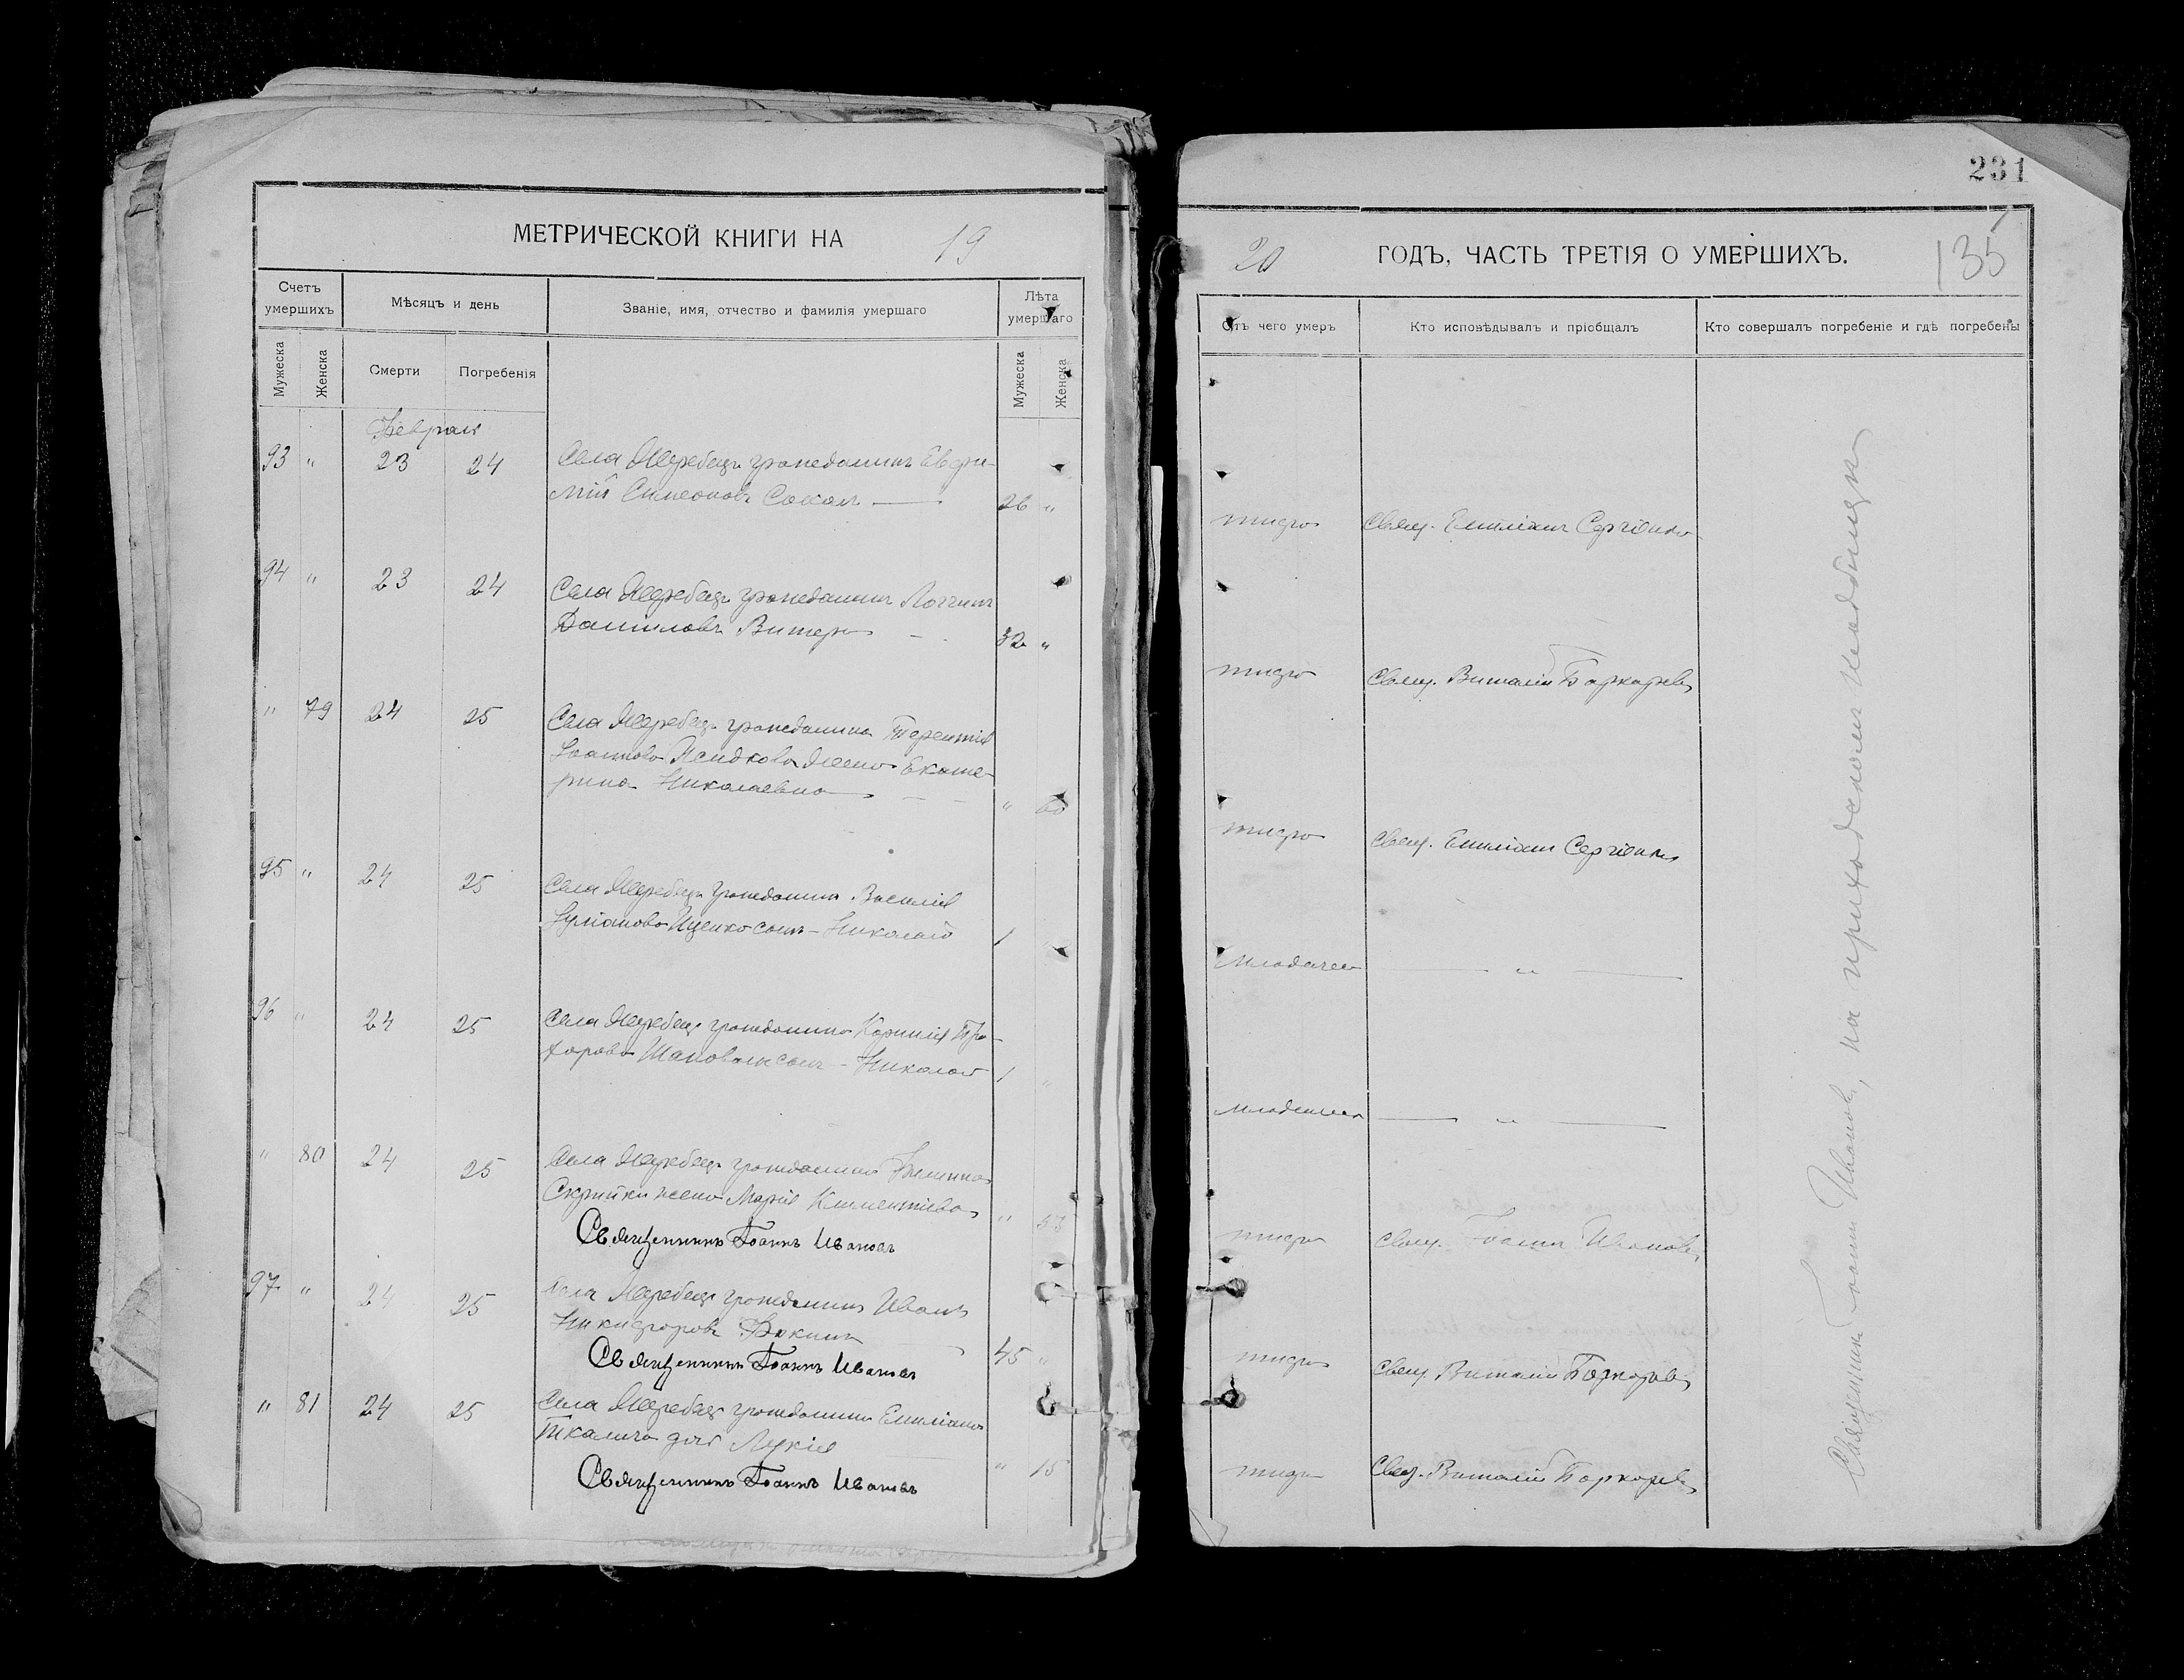 231
МЕТРИЧЕСКОЙ КНИГИ НА 19
20 ГОДЪ, ЧАСТЬ ТРЕТІЯ О УМЕРШИХЪ. 135
Счетъ умершихъ
Мѣсяцъ и день
Званіе, имя, отчество и фамилія умершаго
Лѣта умершаго
Отъ чего умеръ
Кто исповѣдывалъ и пріобщалъ
Кто совершалъ погребеніе и гдѣ погребены
Мужеска
Женска
Смерти
Погребенія
Мужеска
Женска
Февраль
93 " 23 24 Села Жеребецъ гражданинъ Евфи-
мій Симеоновъ Сокалъ 26 "
тифъ Свящ. Емиліанъ
94 " 23 24 Села Жеребецъ гражданинъ Логгинъ
Данииловъ Витеръ 32 "
тифъ Свящ. Виталій
" 79 24 25 Села Жеребецъ гражданина Терентія
Іоаннова жена Екате-
рина Николаевна "
тифъ Свящ. Емиліанъ
95 " 24 25 Села Жеребецъ гражданина Василія
Іуліанова Иценко сынъ - Николай 1 "
"
96 " 24 25 Села Жеребецъ гражданина Корнилія Про-
хорова Шаповалъ сынъ - Николай 1 "
"
" 80 24 25 Села Жеребецъ гражданина Филиппа
Скрипки жена Марія Климентіева " 53
Священникъ Іоаннъ Ивановъ
тифъ Свящ. Іоаннъ Ивановъ
97 " 24 25 Села Жеребецъ гражданинъ Иванъ
Никифоровъ 45 "
Священникъ Іоаннъ Ивановъ
тифъ Свящ. Виталій
" 81 24 25 Села Жеребецъ гражданина Емиліана
Ткалича дочь Лукія " 15
Священникъ Іоаннъ Ивановъ
тифъ Свящ. Виталій
Священникъ Іоаннъ Ивановъ, на приходскомъ кладбищѣ